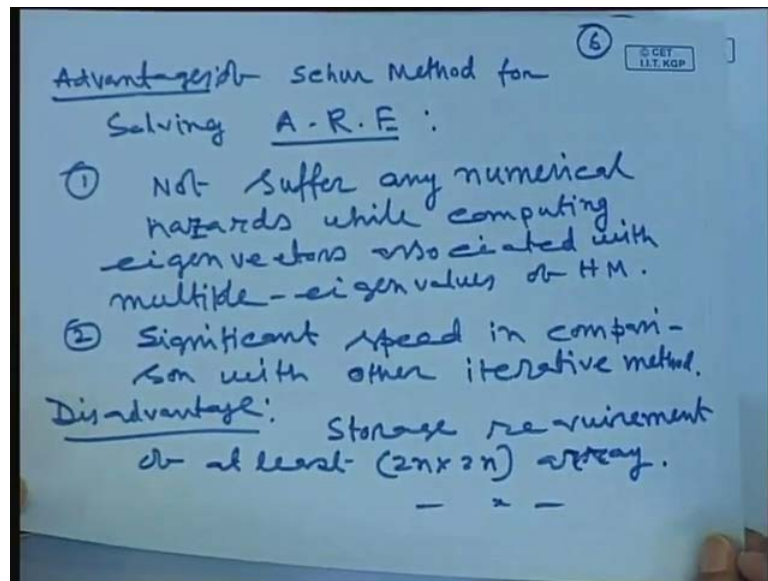 6
© CET
I.I.T. KGP
Advantages of Schur Method for
Solving A.R.E :
① Not suffer any numerical
hazards while computing
eigenvectors associated with
multiple-eigenvalues of HM.
② Significant speed in compari-
son with other iterative method.
Disadvantage: Storage requirement
of at least (2n×2n) array.
— x —